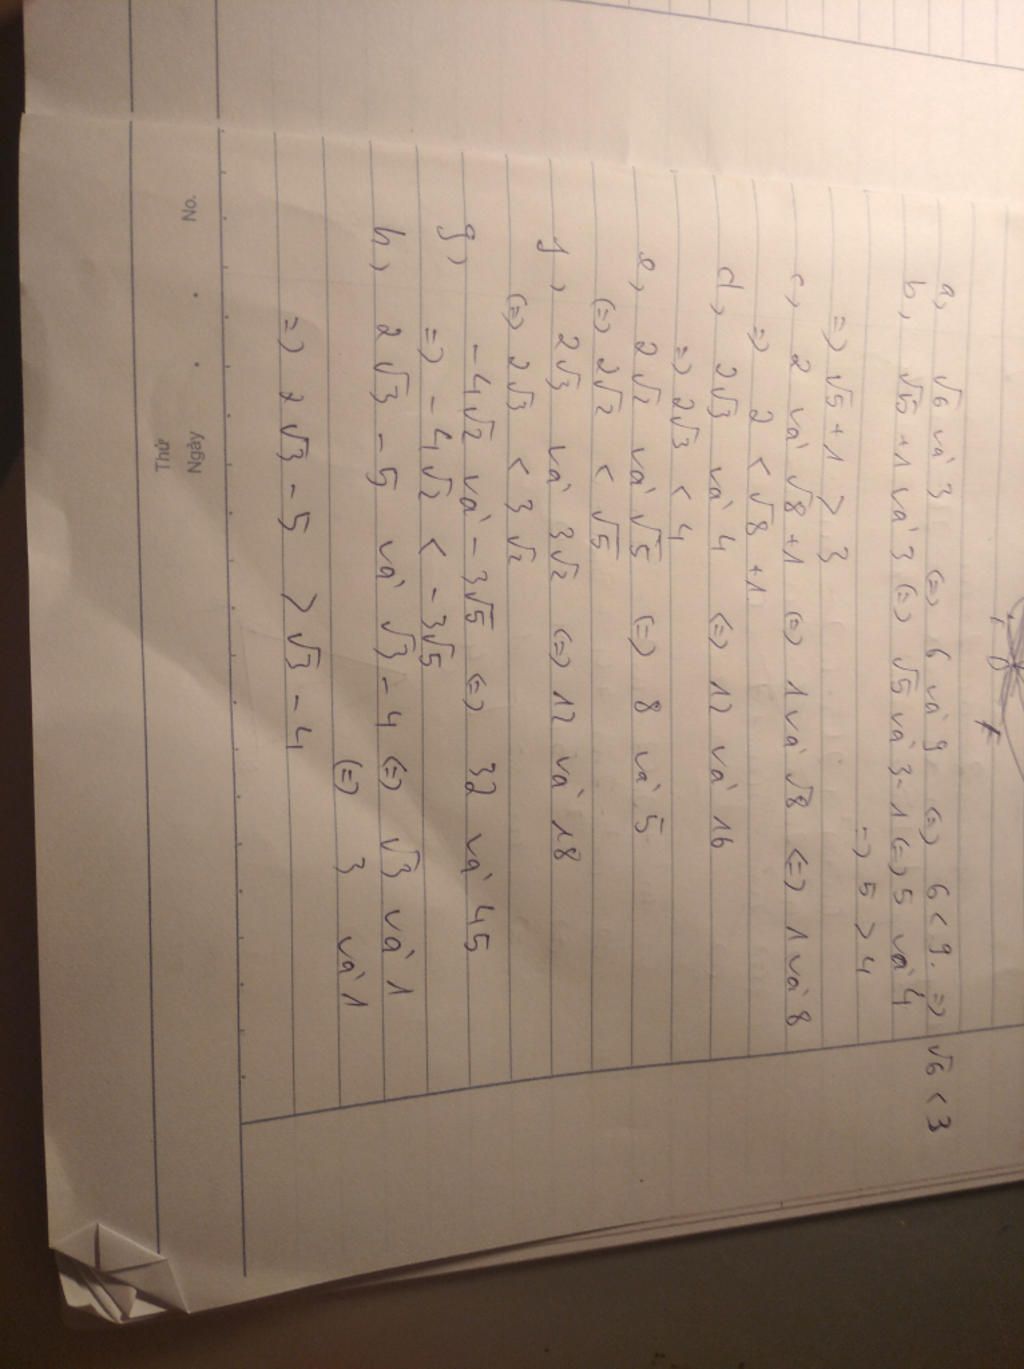 a, √6 và 3 (=) 6 và 9 (=) 6 < 9. =) √6 < 3
b, √5 +1 và 3 (=) √5 và 3-1 (=) 5 và 4
=) 5 > 4
=) √5 + 1 > 3
c, 2 và √8 +1 (=) 1 và √8 (=) 1 và 8
=) 2 < √8 +1
d, 2√3 và 4 (=) 12 và 16
=) 2√3 < 4
e, 2√2 và √5 (=) 8 và 5
(=) 2√2 < √5
f, 2√3 và 3√2 (=) 12 và 18
(=) 2√3 < 3√2
g, -4√2 và -3√5 (=) 32 và 45
=) -4√2 < -3√5
h, 2√3 - 5 và √3 - 4 (=) √3 và 1
(=) 3 và 1
=) 2√3 - 5 > √3 - 4
Thứ
Ngày
No.